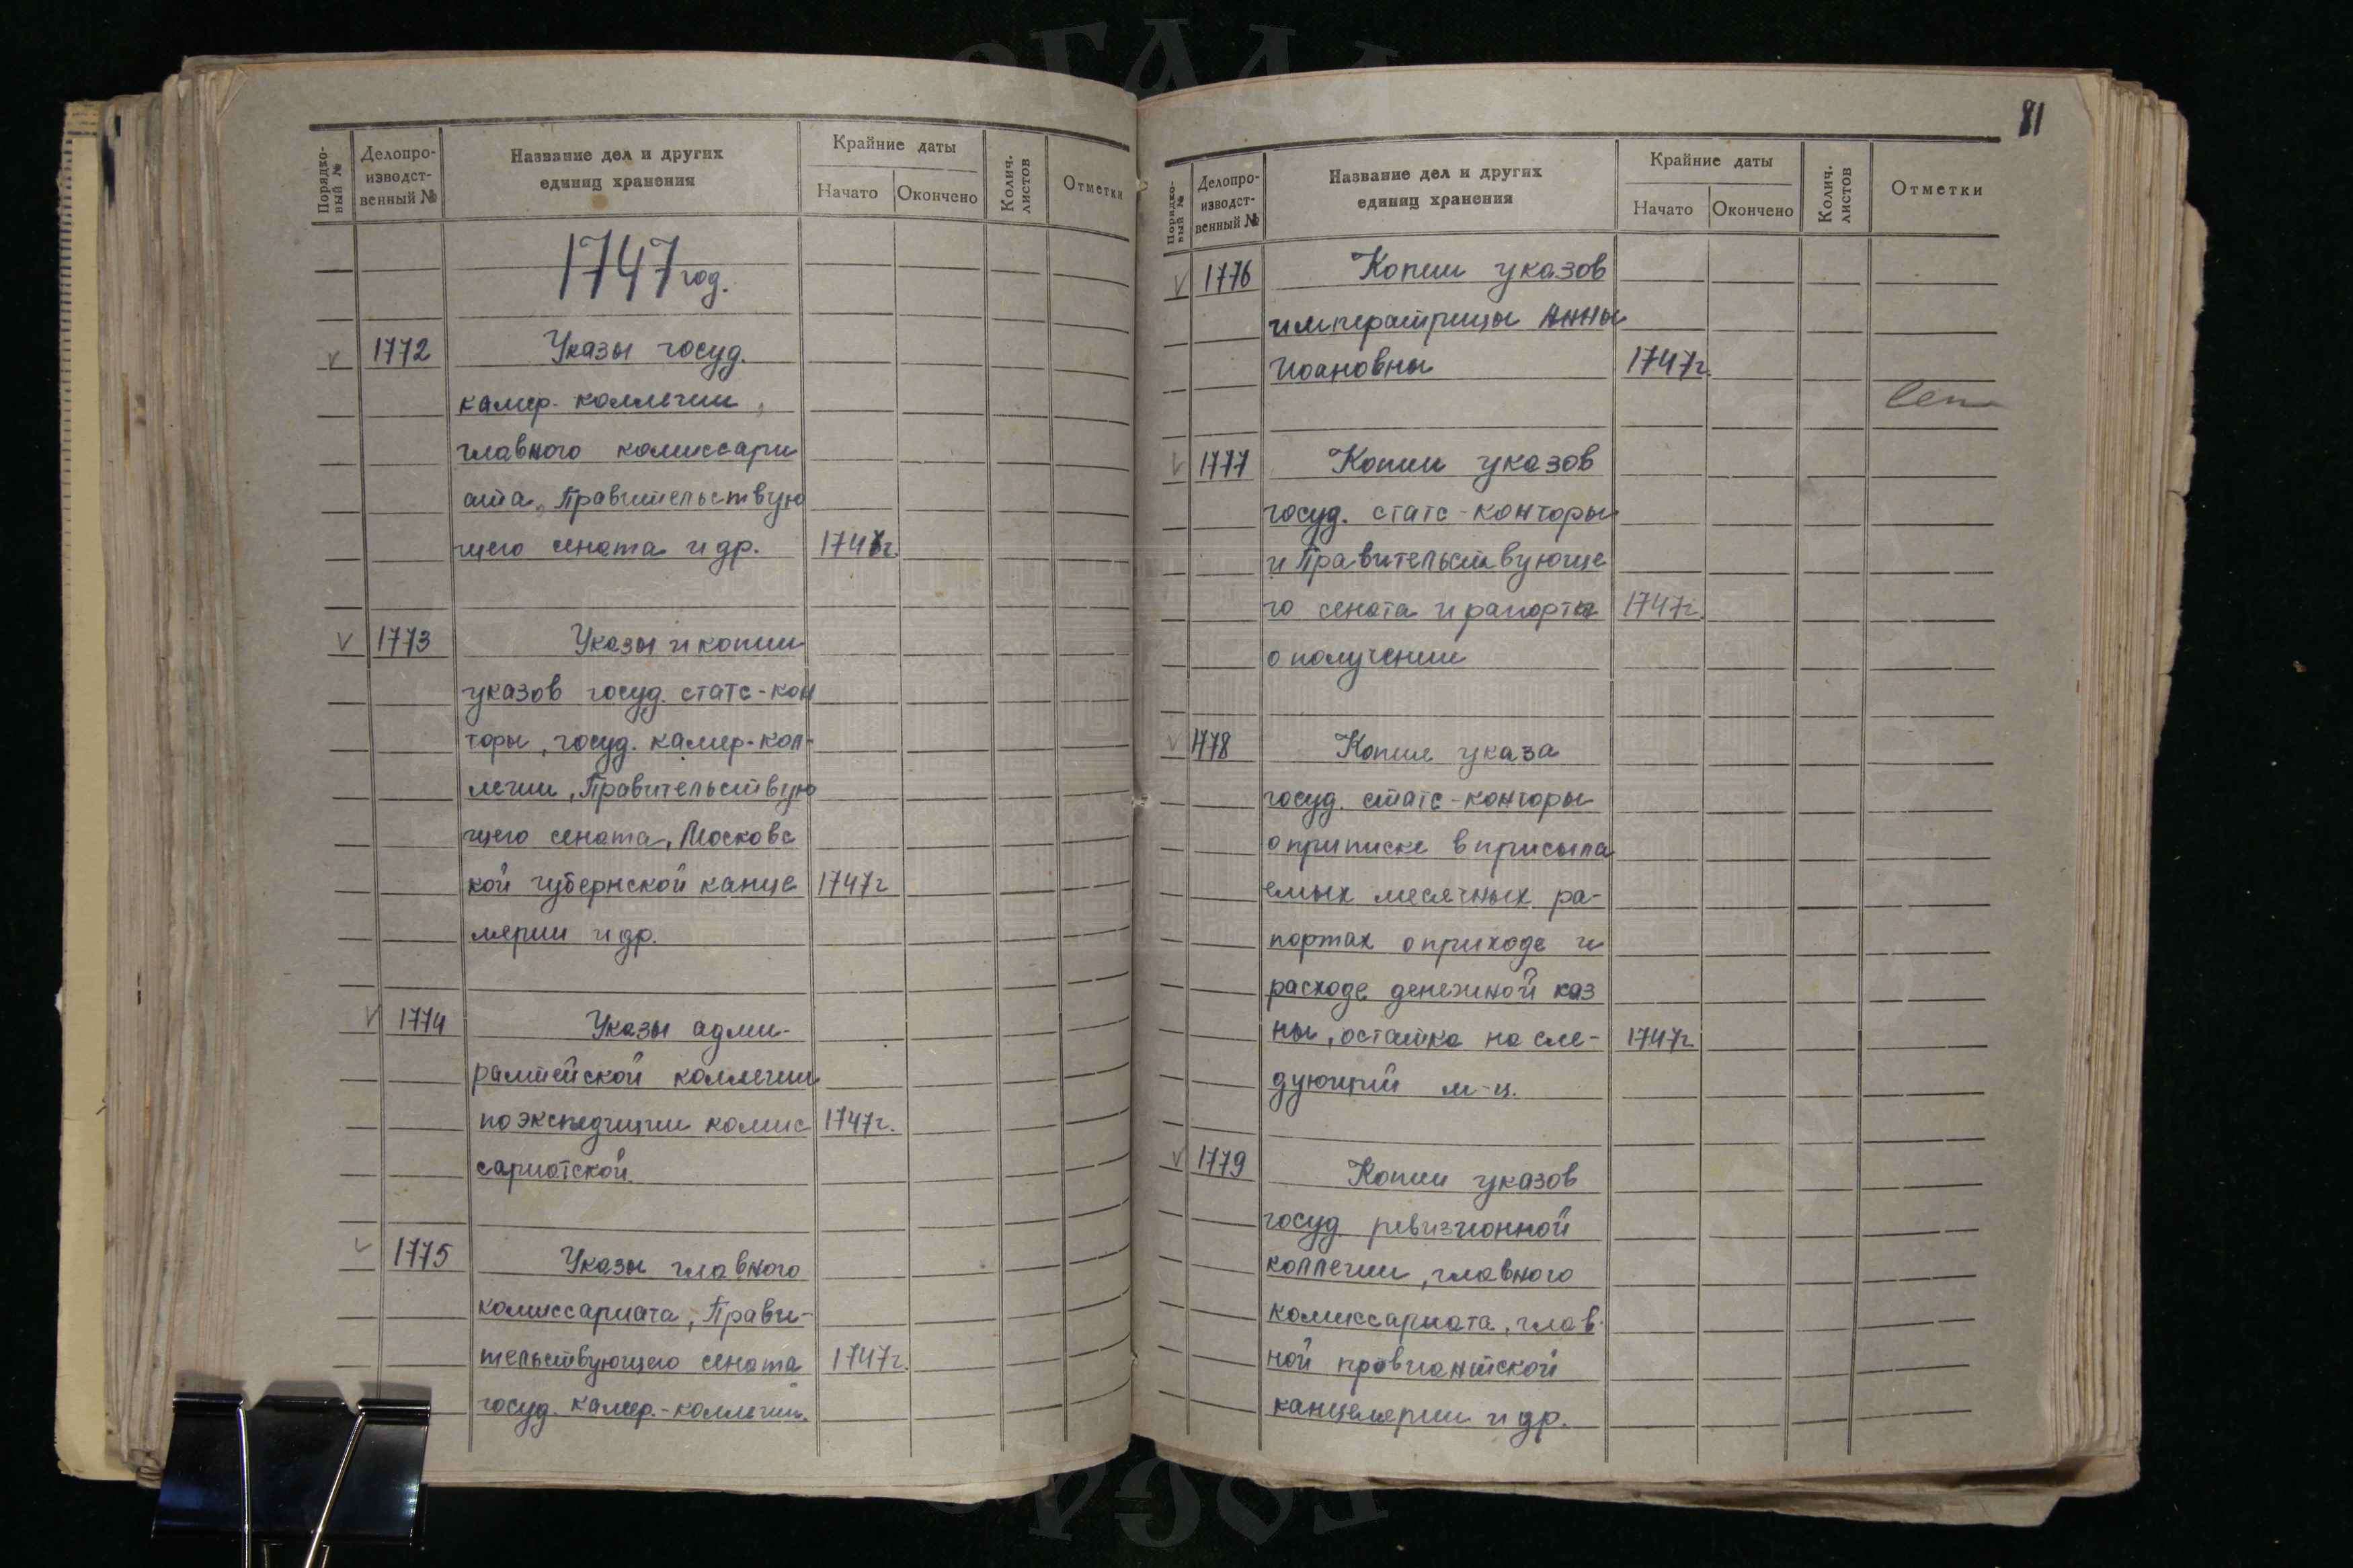 Порядко-
вый №
Делопро-
изводст-
венный №
Название дел и других
единиц хранения
Крайние даты
Начато
Окончено
Колич.
листов
Отметки
1747 год.
V 1772 Указы госуд.
камер-коллегии,
главного комиссари
ата, Правительствую
щего сената и др. 1747г.
V 1773 Указы и копии
указов госуд. статс-кон
торы, госуд. камер-кол-
легии, Правительствую
щего сената, Московс
кой губернской канце 1747г
лярии и др.
V 1774 Указы адми-
ралтейской коллегии
по экспедиции комис 1747г.
сариатской.
V 1775 Указы главного
комиссариата, Прави-
тельствующего сената 1747г.
госуд. камер.-коллегии.
81
Порядко-
вый №
Делопро-
изводст-
венный №
Название дел и других
единиц хранения
Крайние даты
Начато
Окончено
Колич.
листов
Отметки
V 1776 Копии указов
императрицы Анны
Иоановны 1747г.
V 1777 Копии указов
госуд. статс-конторы
и Правительствующе
го сената и рапорты 1747г.
о получении
V 1778 Копия указа
госуд. статс-конторы
о приписке в присыла
емых месячных ра-
портах о приходе и
расходе денежной каз
ны, остатка на сле- 1747г.
дующий м-ц.
V 1779 Копии указов
госуд. ревизионной
коллегии, главного
комиссариата, глав-
ной провиантской
канцелярии и др.